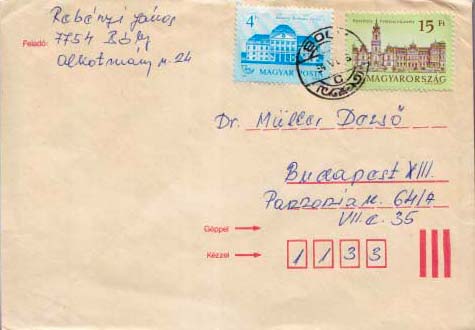 Feladó:
Rabányi János
7754 Bóly
Alkotmány u. 24
4Ft
MAGYAR POSTA
15 Ft
MAGYARORSZÁG
BOLY
Dr. Müller Dezső
Budapest XIII.
Pannónia u. 64/A
VII. e. 35
Géppel
Kézzel
1133